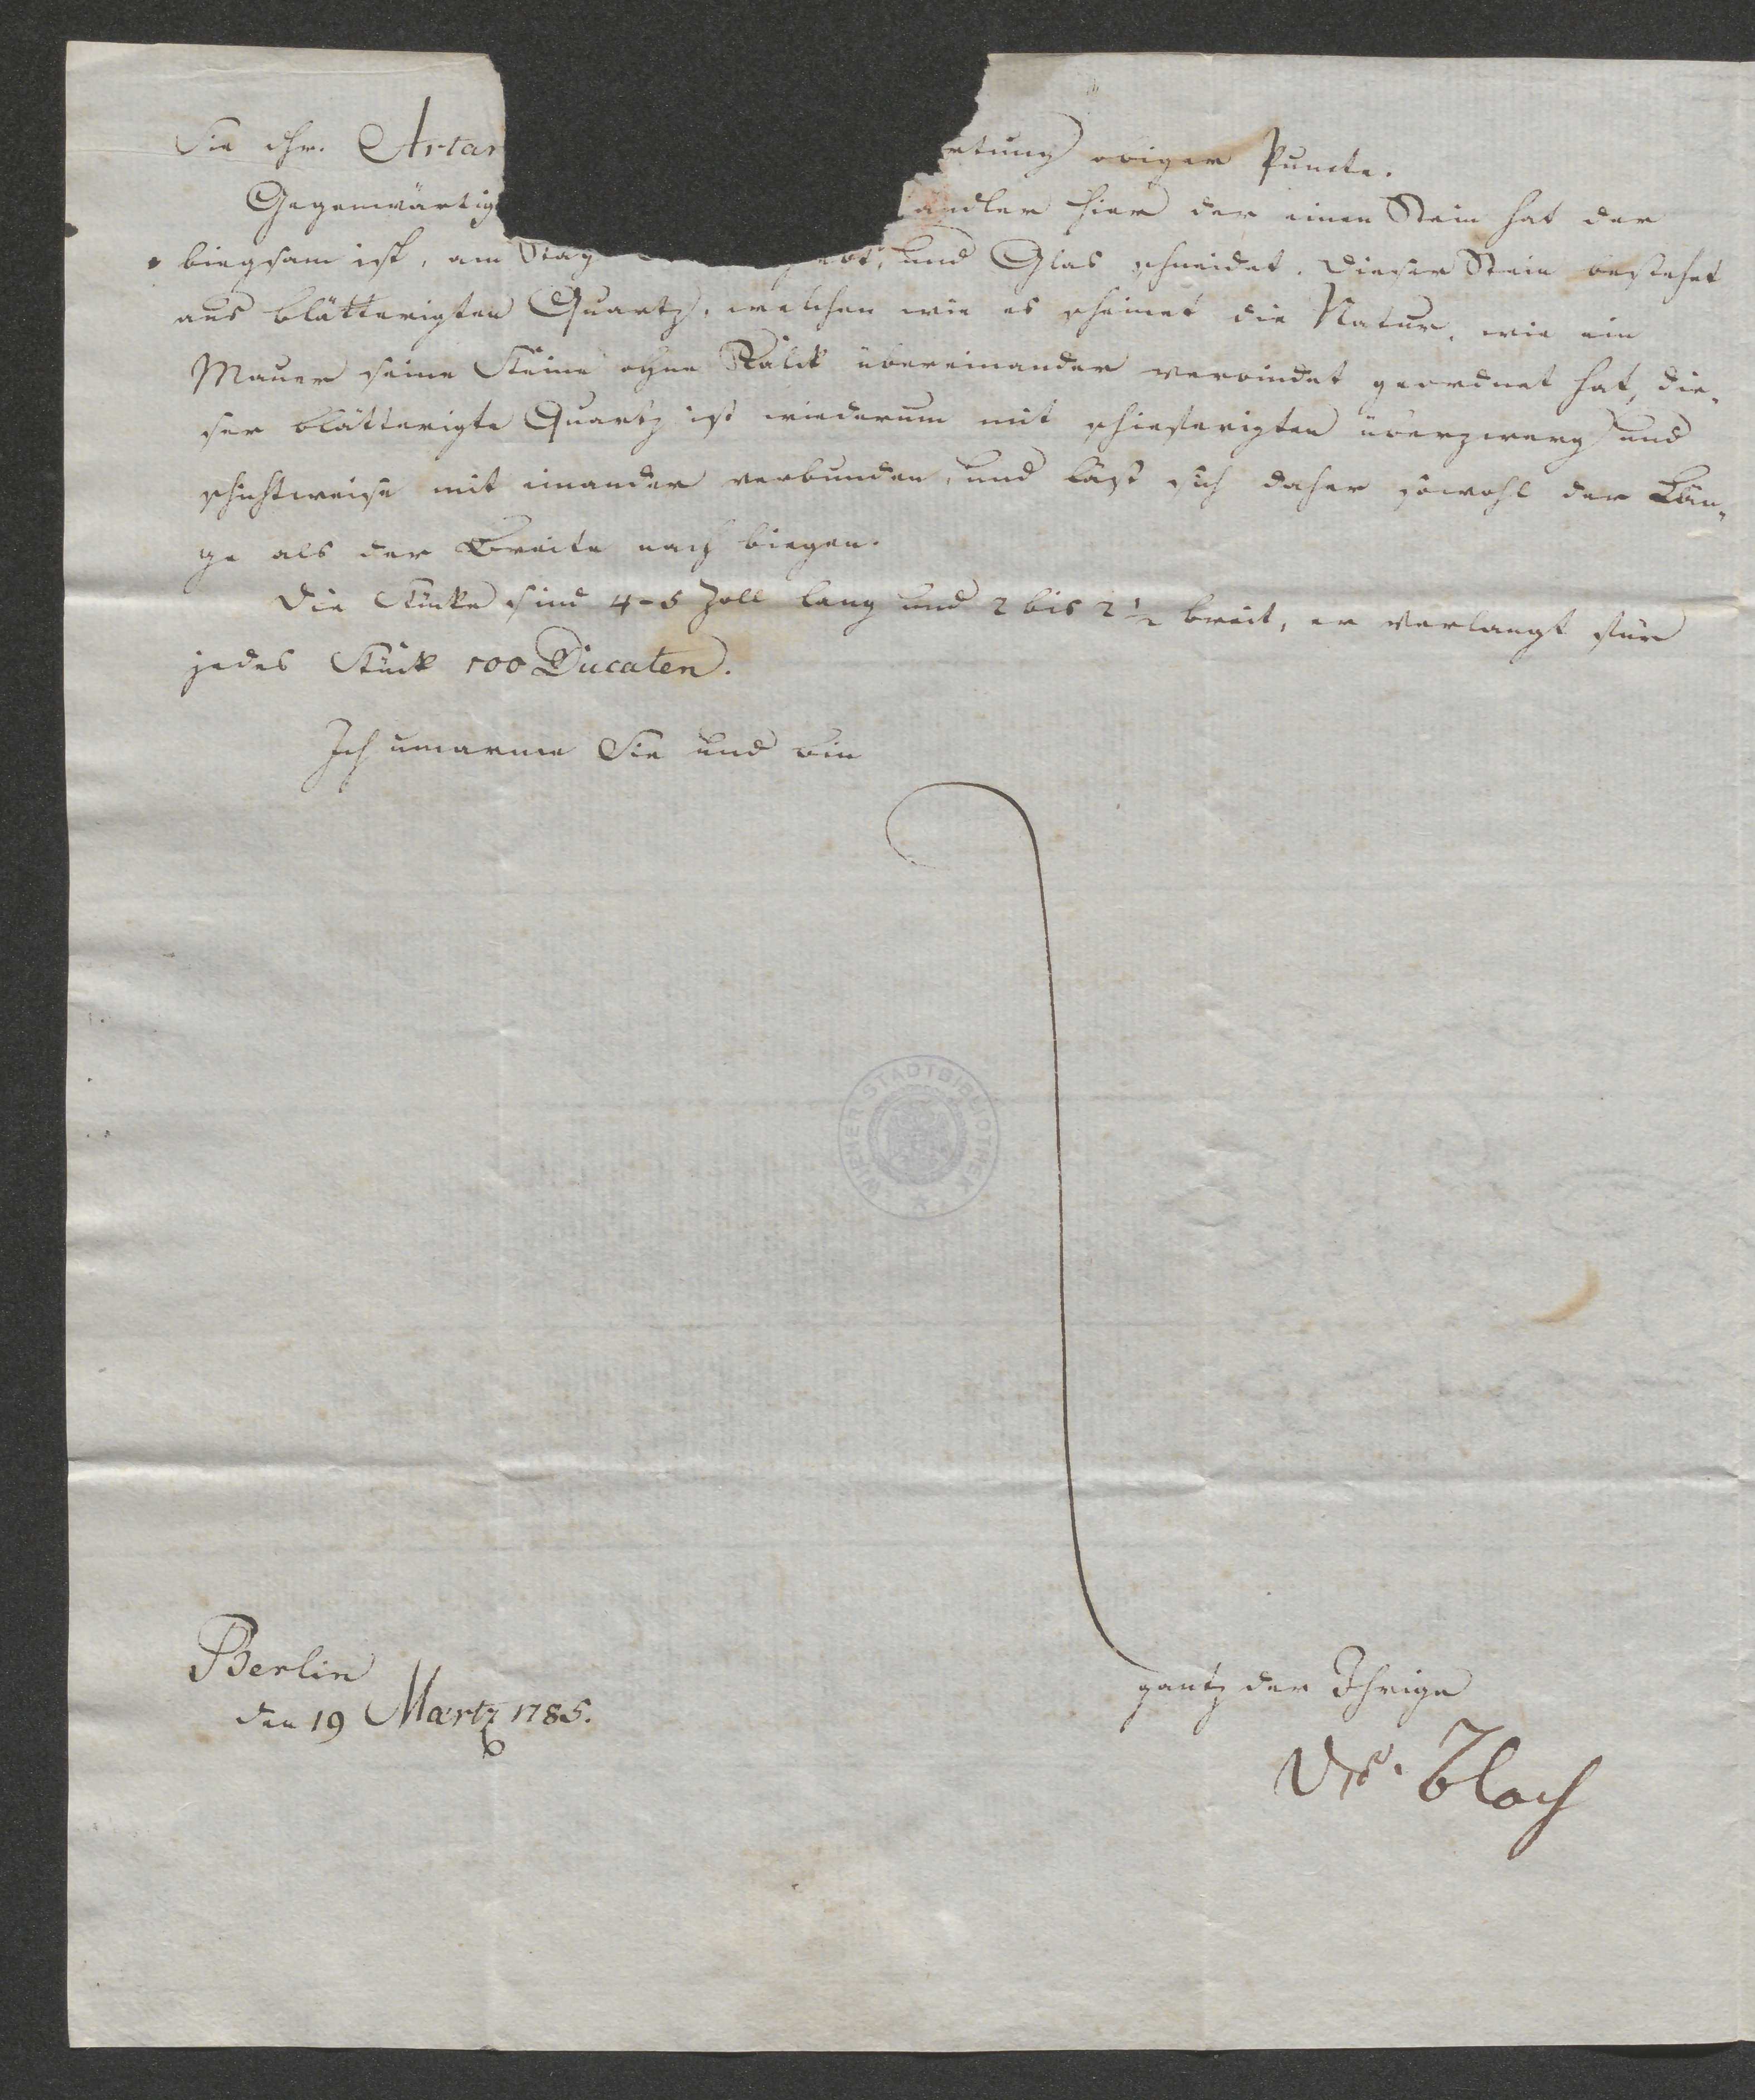 Sie Hr. Artar
rtung obiger Puncte.
Gegenwärtig
ändler hier der einen Stein hat der
biegsam ist, am Stag und Glas schneidet. Dieser Stein bestehet
aus blätterigten Quartz, welchen wie es scheinet die Natur, wie ein
Maurer seine Steine ohne Kalck übereinander verbindet geordnet hat, die-
ser blätterigte Quartz ist wiederum mit schieferigten überzwerg und
schichtweise mit einander verbunden, und läst sich daher sowohl der Län-
ge als der Breite nach biegen.
Die Stücke sind 4-5 Zoll lang und 2 bis 2 1/2 breit, er verlangt für
jedes Stück 100 Ducaten.
Ich umarme Sie und bin
gantz der Ihrige
Dr. Bloch
Berlin
den 19 Martz 1785.
WIENER STADTBIBLIOTHEK